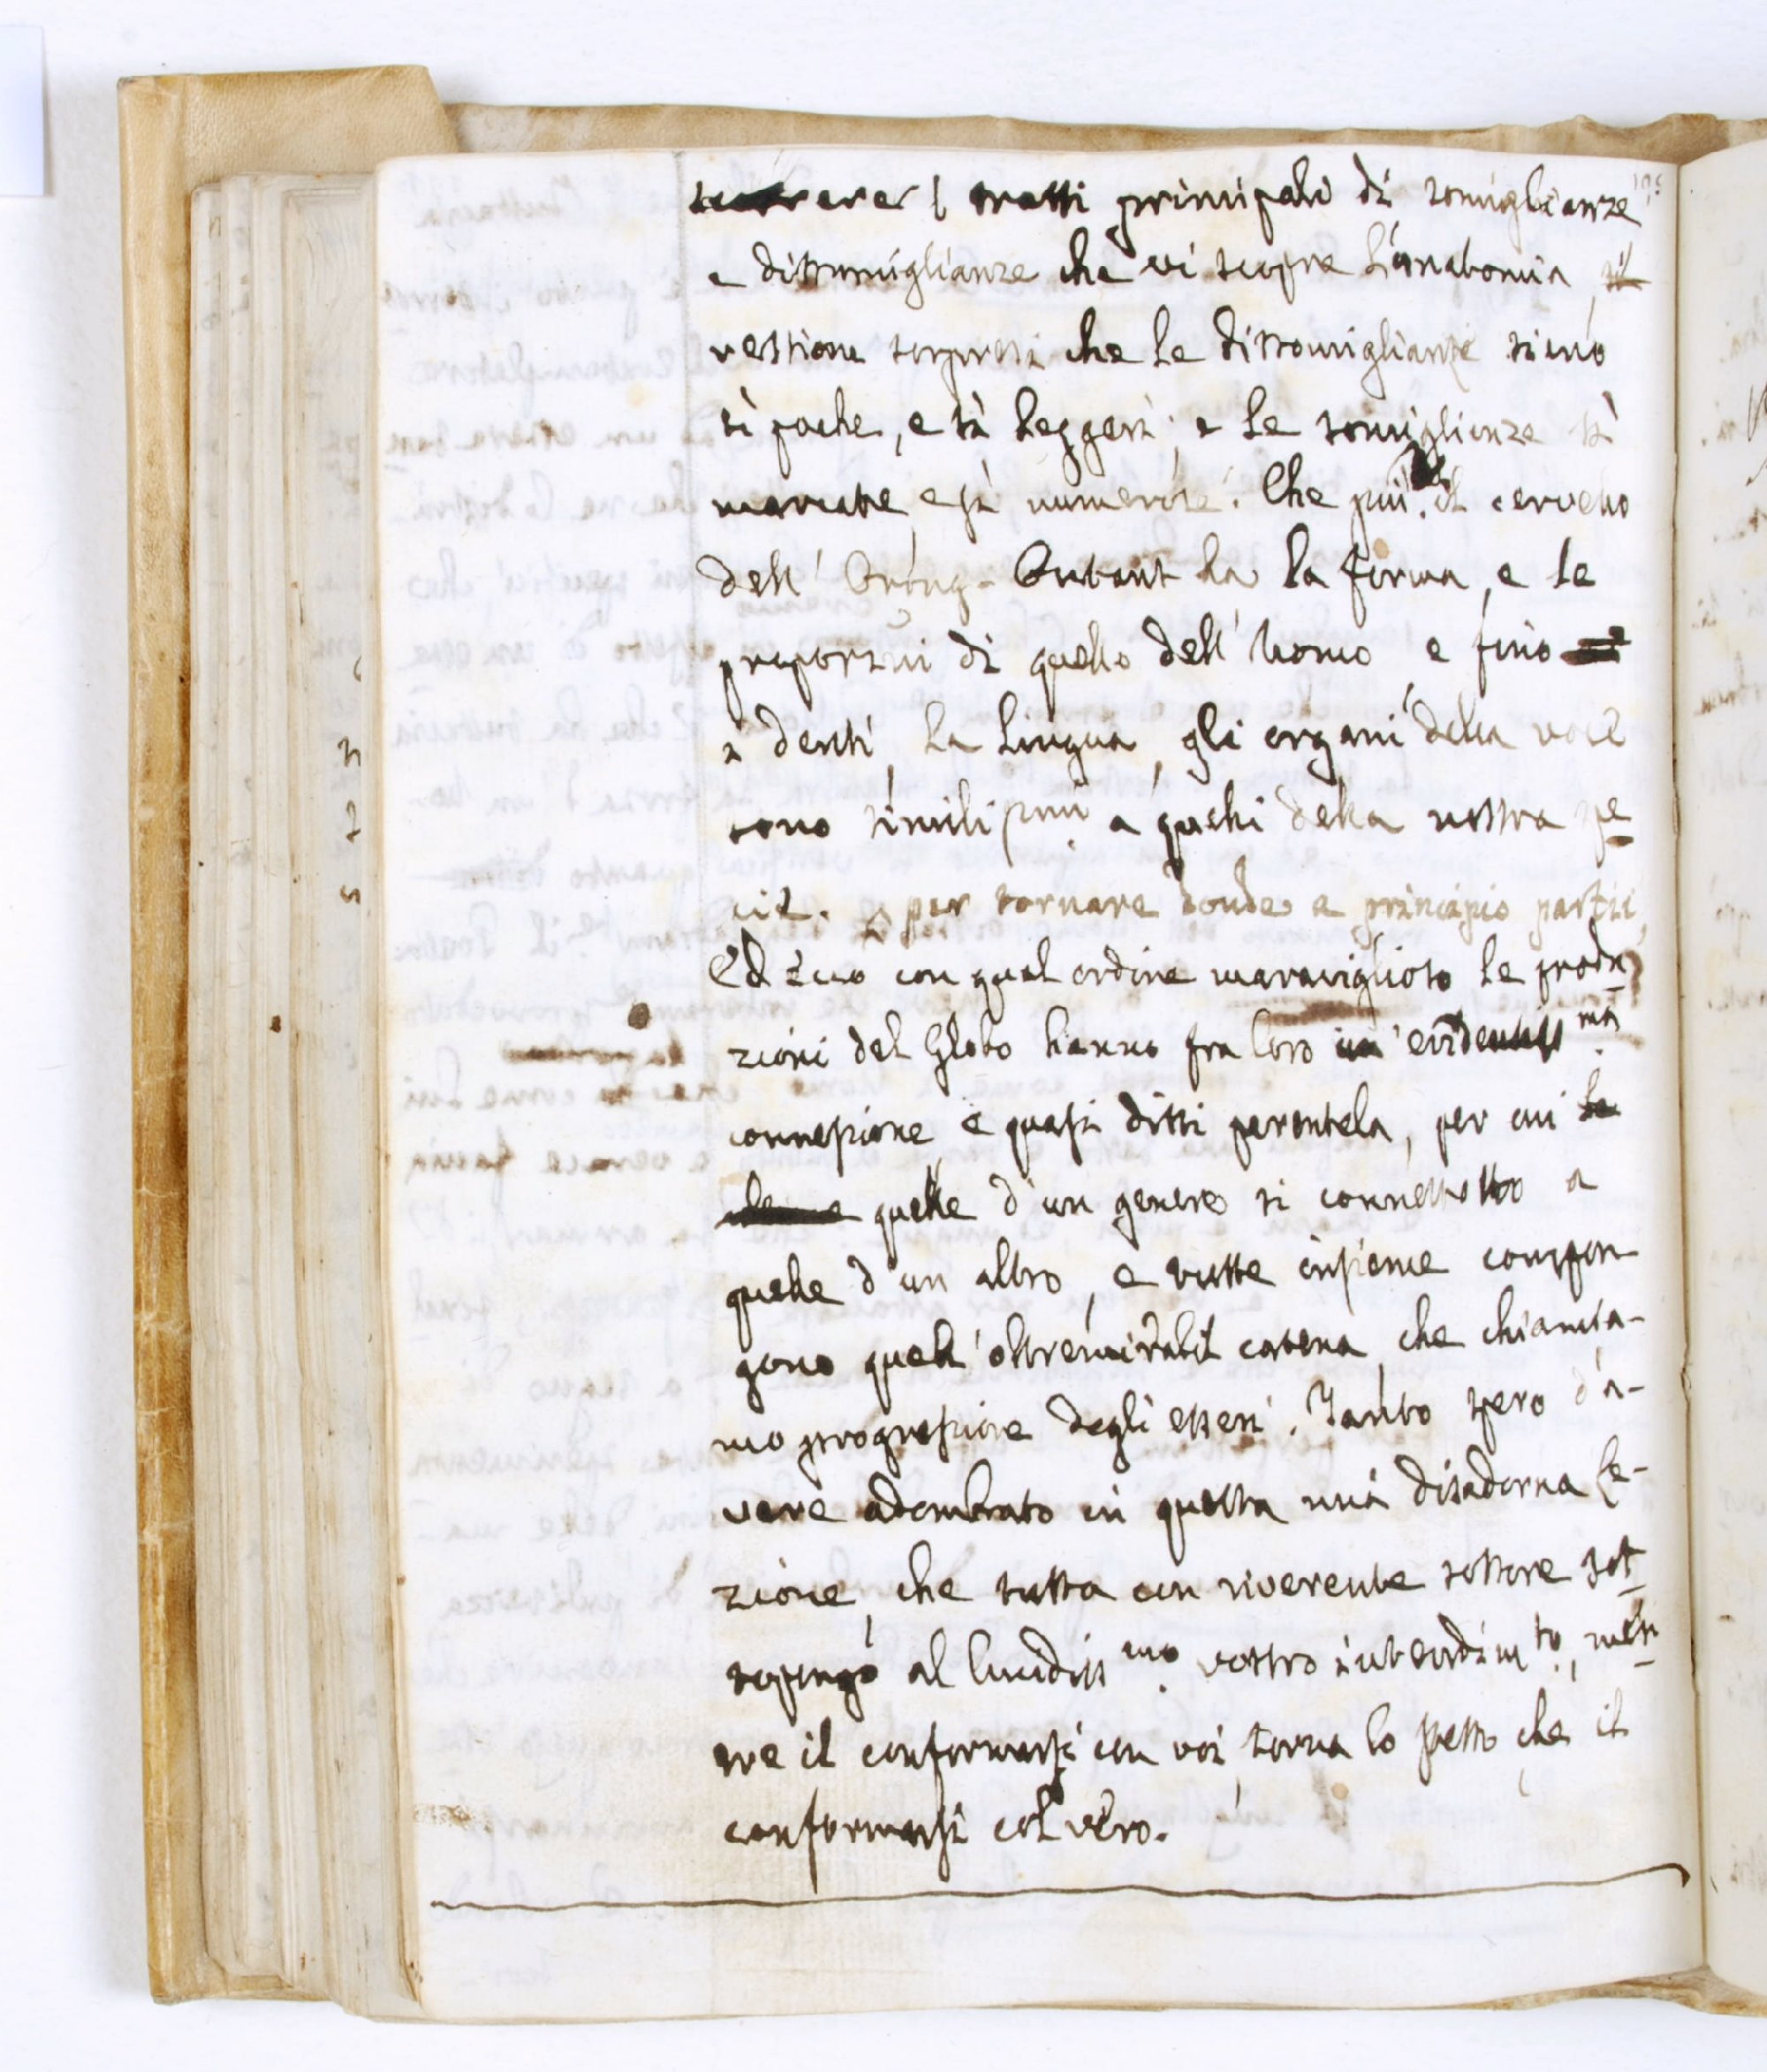 scorrere i tratti principali di somiglianze
e dissimiglianze che vi scopre l'anatomia,
restiam sorpresi che le dissomiglianze sieno
sì poche, e sì leggeri; e le somiglianze sì
marcate, e sì numerose. Che più. il cervello
dell' Orang-Outant ha la forma, e le
proporzioni di quello dell' Uomo, e fino
i denti, la lingua, gli organi della voce
sono similissimi a quelli della nostra spe
cie. per tornare donde a principio partii,
Ed ecco con qual ordine maraviglioso le produ
zioni del Globo hanno fra loro un' evidentiss.ma
connessione, e quasi dissi parentela, per cui le
quelle d'un genere si connettono a
quelle d'un altro, e tutte insieme compon
gono quell' oltremirabil catena, che chiamia-
mo progressione degli esseri. Tanto spero d'a-
vere adombrato in questa mia disadorna Le-
zione, che tutta con riverente tossore sot
topongo al lucidiss.mo vostro intendim.to, men
tre il conformarsi con voi, torna lo stesso che il
conformarsi col vero.